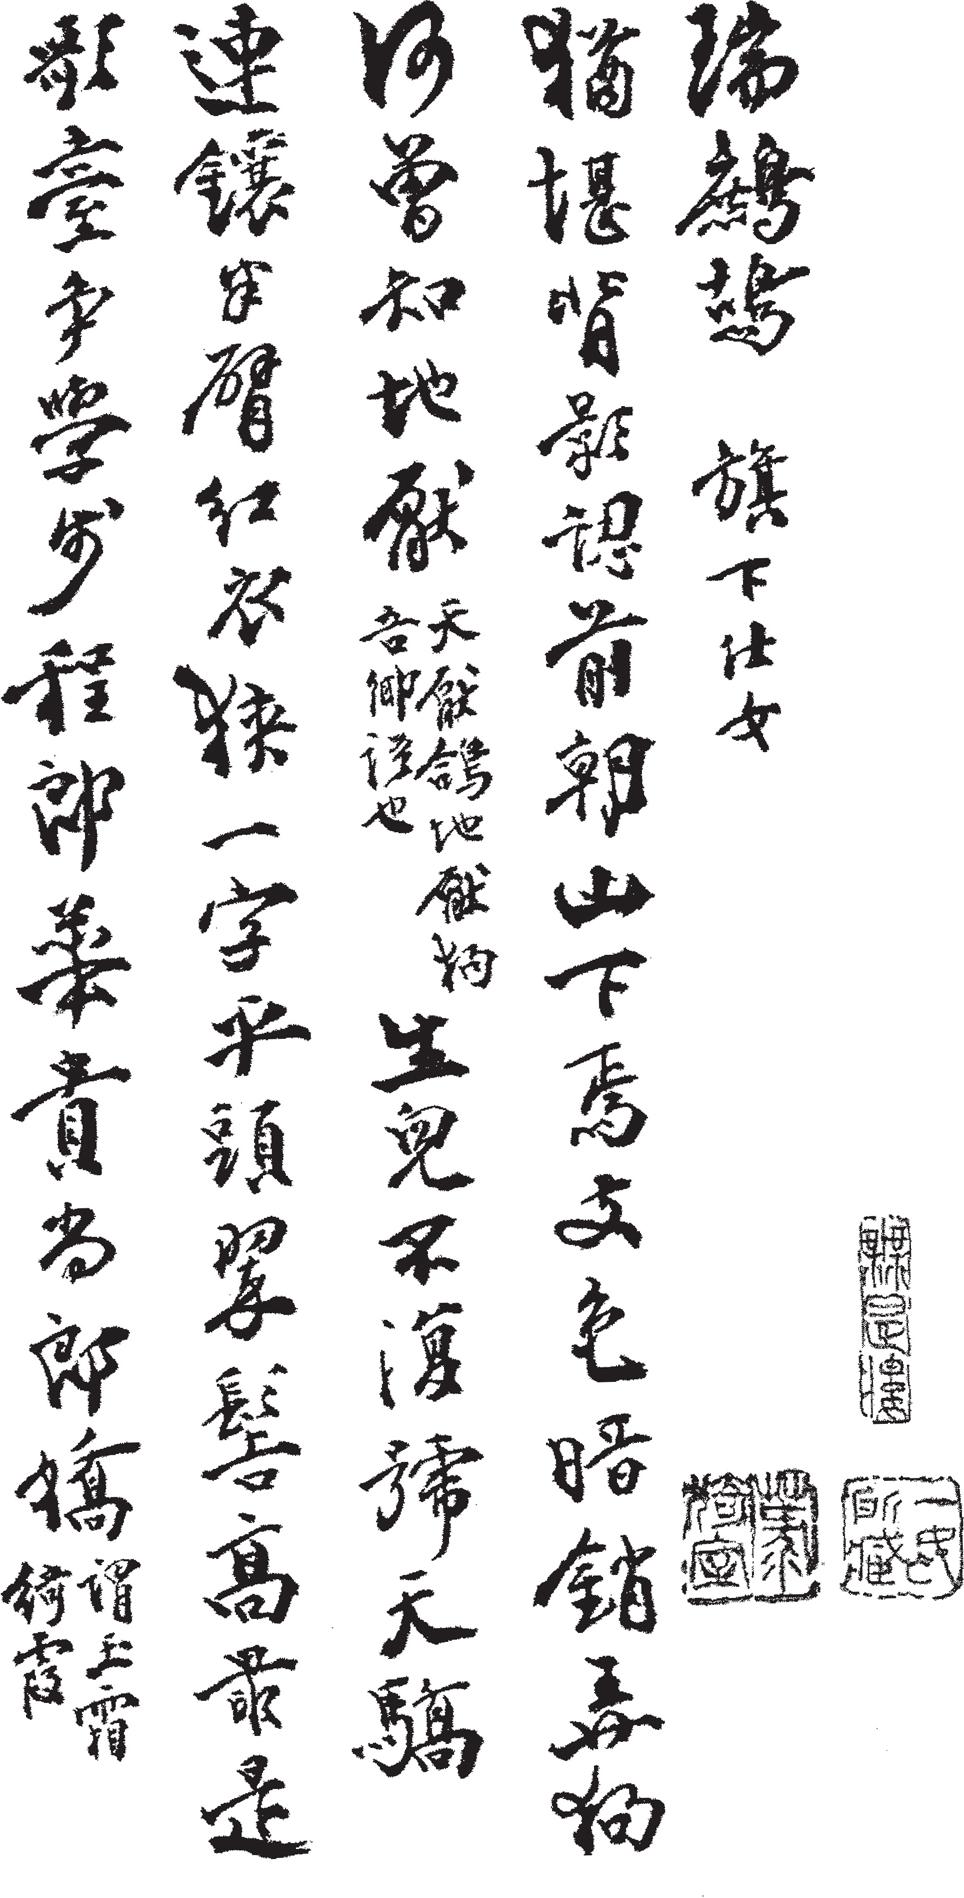 瑞鷓鴣 旗下仕女
猶堪背影認前朝山下焉支色暗銷弄狗
何曾知地厭天厭鴿地厭狗吾鄉諺也生兒不復號天驕
連鑲半臂紅衣狹一字平頭翠髻高最是
歌臺爭學步程郎華貴尚郎嬌謂玉霜綺霞